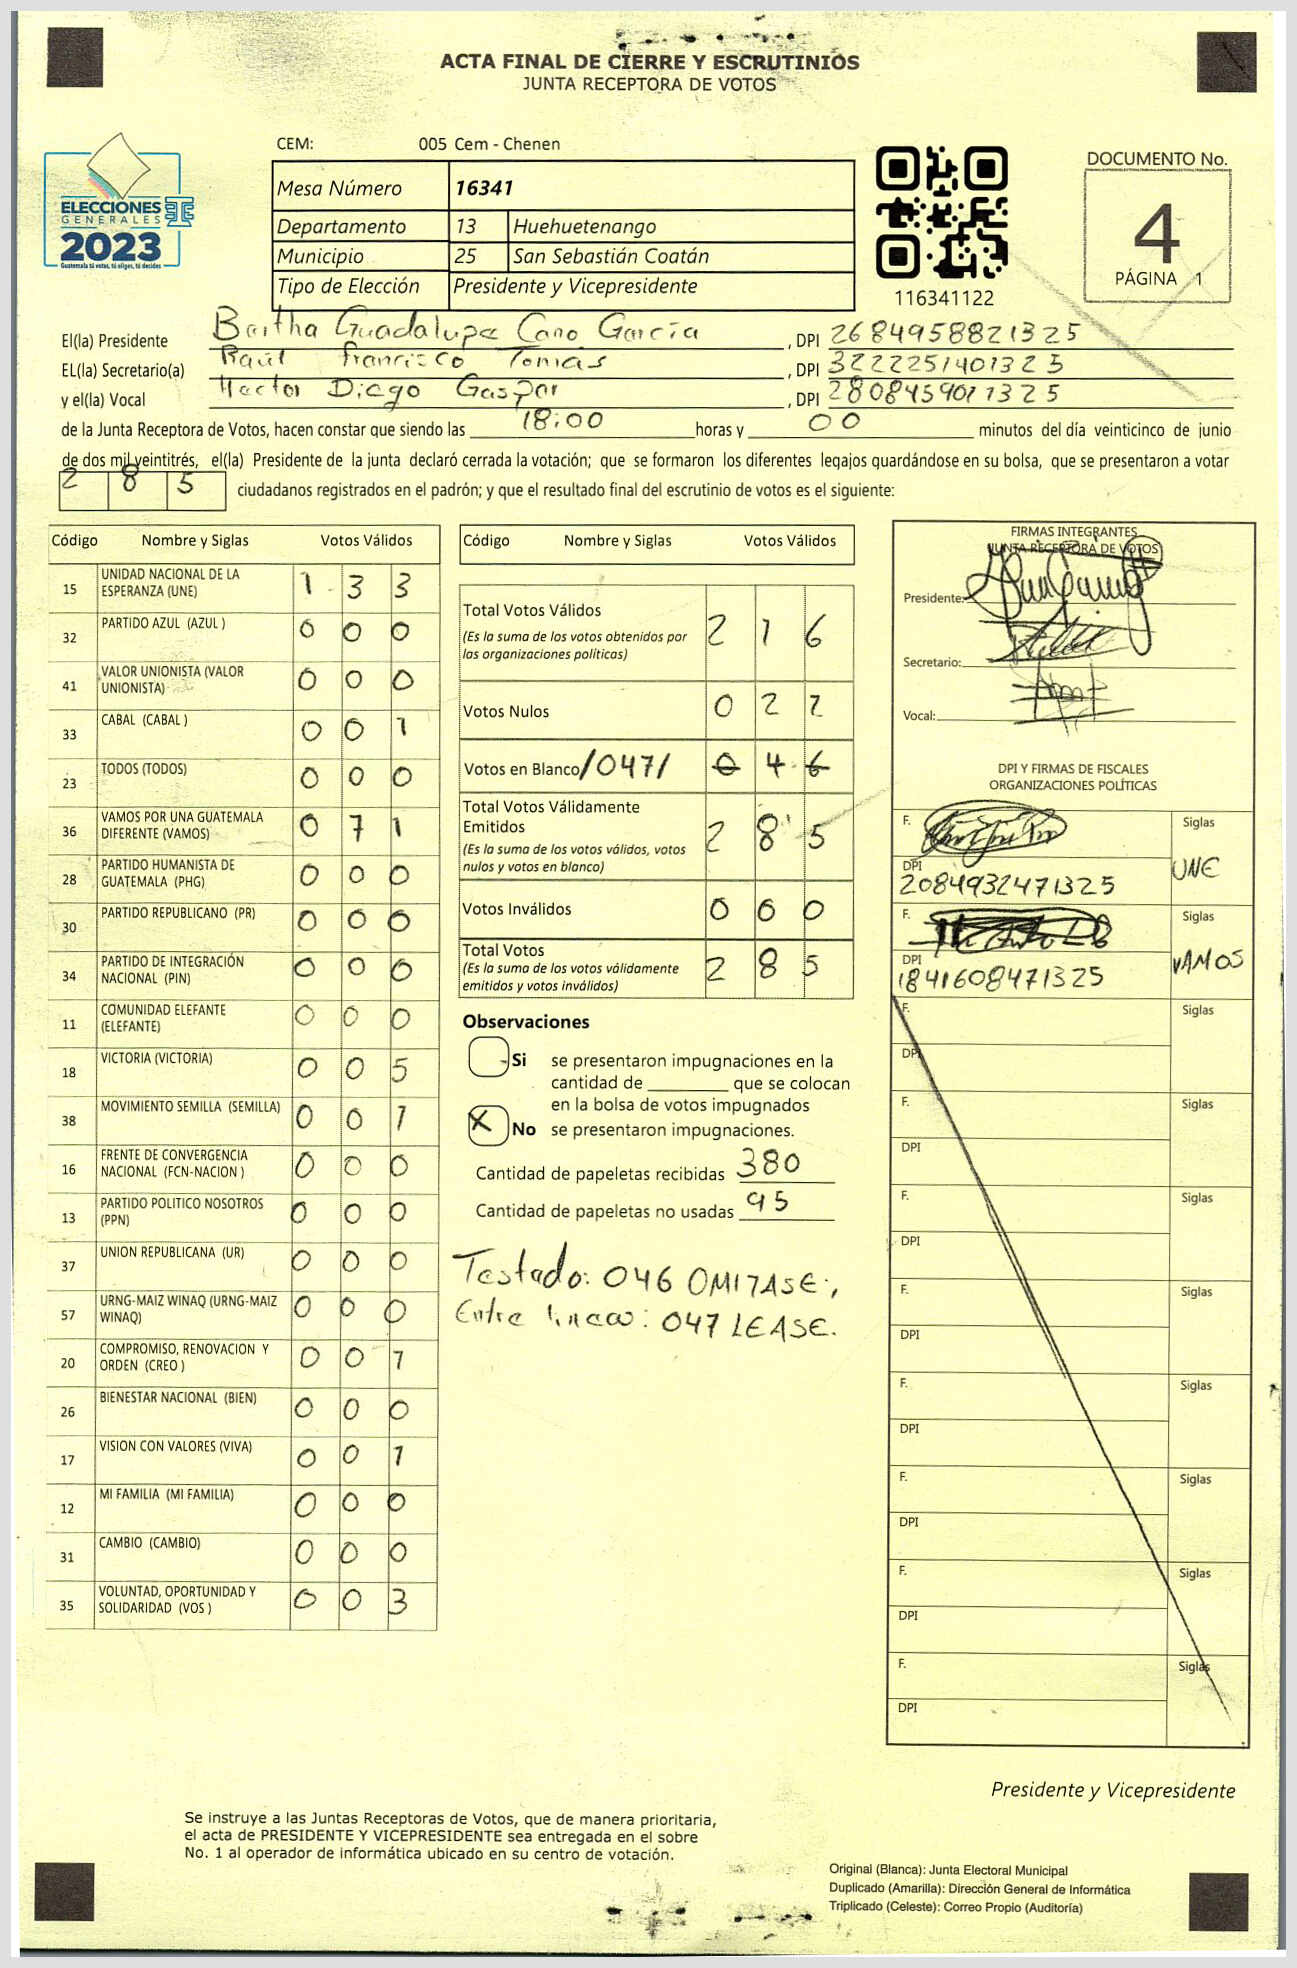 ACTA FINAL DE CIERRE Y ESCRUTINIOS
JUNTA RECEPTORA DE VOTOS
CEM: 005 Cem - Chenen
ELECCIONES
GENERALES
2023
Guatemala tú votas, tú eliges, tú decides
Mesa Número 16341
Departamento 13 Huehuetenango
Municipio 25 San Sebastián Coatán
Tipo de Elección Presidente y Vicepresidente
116341122
DOCUMENTO No.
4
PÁGINA 1
El(la) Presidente Bertha Guadalupe Cano García, DPI 2684958821325
EL(la) Secretario(a) Raúl Francisco Tomas, DPI 3222251401325
y el(la) Vocal Hector Diego Gaspar, DPI 2808459011325
de la Junta Receptora de Votos, hacen constar que siendo las 18:00 horas y 00 minutos del día veinticinco de junio
de dos mil veintitrés, el(la) Presidente de la junta declaró cerrada la votación; que se formaron los diferentes legajos guardándose en su bolsa, que se presentaron a votar
2 8 5 ciudadanos registrados en el padrón; y que el resultado final del escrutinio de votos es el siguiente:
Código Nombre y Siglas Votos Válidos
15 UNIDAD NACIONAL DE LA ESPERANZA (UNE) 1 3 3
32 PARTIDO AZUL (AZUL ) 0 0 0
41 VALOR UNIONISTA (VALOR UNIONISTA) 0 0 0
33 CABAL (CABAL ) 0 0 1
23 TODOS (TODOS) 0 0 0
36 VAMOS POR UNA GUATEMALA DIFERENTE (VAMOS) 0 7 1
28 PARTIDO HUMANISTA DE GUATEMALA (PHG) 0 0 0
30 PARTIDO REPUBLICANO (PR) 0 0 0
34 PARTIDO DE INTEGRACIÓN NACIONAL (PIN) 0 0 0
11 COMUNIDAD ELEFANTE (ELEFANTE) 0 0 0
18 VICTORIA (VICTORIA) 0 0 5
38 MOVIMIENTO SEMILLA (SEMILLA) 0 0 1
16 FRENTE DE CONVERGENCIA NACIONAL (FCN-NACION ) 0 0 0
13 PARTIDO POLITICO NOSOTROS (PPN) 0 0 0
37 UNION REPUBLICANA (UR) 0 0 0
57 URNG-MAIZ WINAQ (URNG-MAIZ WINAQ) 0 0 0
20 COMPROMISO, RENOVACION Y ORDEN (CREO ) 0 0 1
26 BIENESTAR NACIONAL (BIEN) 0 0 0
17 VISION CON VALORES (VIVA) 0 0 1
12 MI FAMILIA (MI FAMILIA) 0 0 0
31 CAMBIO (CAMBIO) 0 0 0
35 VOLUNTAD, OPORTUNIDAD Y SOLIDARIDAD (VOS ) 0 0 3
Código Nombre y Siglas Votos Válidos
Total Votos Válidos 2 1 6
(Es la suma de los votos obtenidos por
las organizaciones políticas)
Votos Nulos 0 2 2
Votos en Blanco /047/ 0 4 6
Total Votos Válidamente
Emitidos 2 8 5
(Es la suma de los votos válidos, votos
nulos y votos en blanco)
Votos Inválidos 0 0 0
Total Votos 2 8 5
(Es la suma de los votos válidamente
emitidos y votos inválidos)
Observaciones
Si se presentaron impugnaciones en la
cantidad de ________ que se colocan
en la bolsa de votos impugnados
X No se presentaron impugnaciones.
Cantidad de papeletas recibidas 380
Cantidad de papeletas no usadas 95
Testado: 046 OMITASE;
Entre lineas: 047 LEASE.
FIRMAS INTEGRANTES
JUNTA RECEPTORA DE VOTOS
Presidente:
Secretario:
Vocal:
DPI Y FIRMAS DE FISCALES
ORGANIZACIONES POLÍTICAS
F. Siglas
DPI UNE
2084932471325
F. Siglas
DPI VAMOS
1841608471325
F. Siglas
DPI
F. Siglas
DPI
F. Siglas
DPI
F. Siglas
DPI
F. Siglas
DPI
F. Siglas
DPI
F. Siglas
DPI
F. Siglas
DPI
Presidente y Vicepresidente
Se instruye a las Juntas Receptoras de Votos, que de manera prioritaria,
el acta de PRESIDENTE Y VICEPRESIDENTE sea entregada en el sobre
No. 1 al operador de informática ubicado en su centro de votación.
Original (Blanca): Junta Electoral Municipal
Duplicado (Amarilla): Dirección General de Informática
Triplicado (Celeste): Correo Propio (Auditoría)